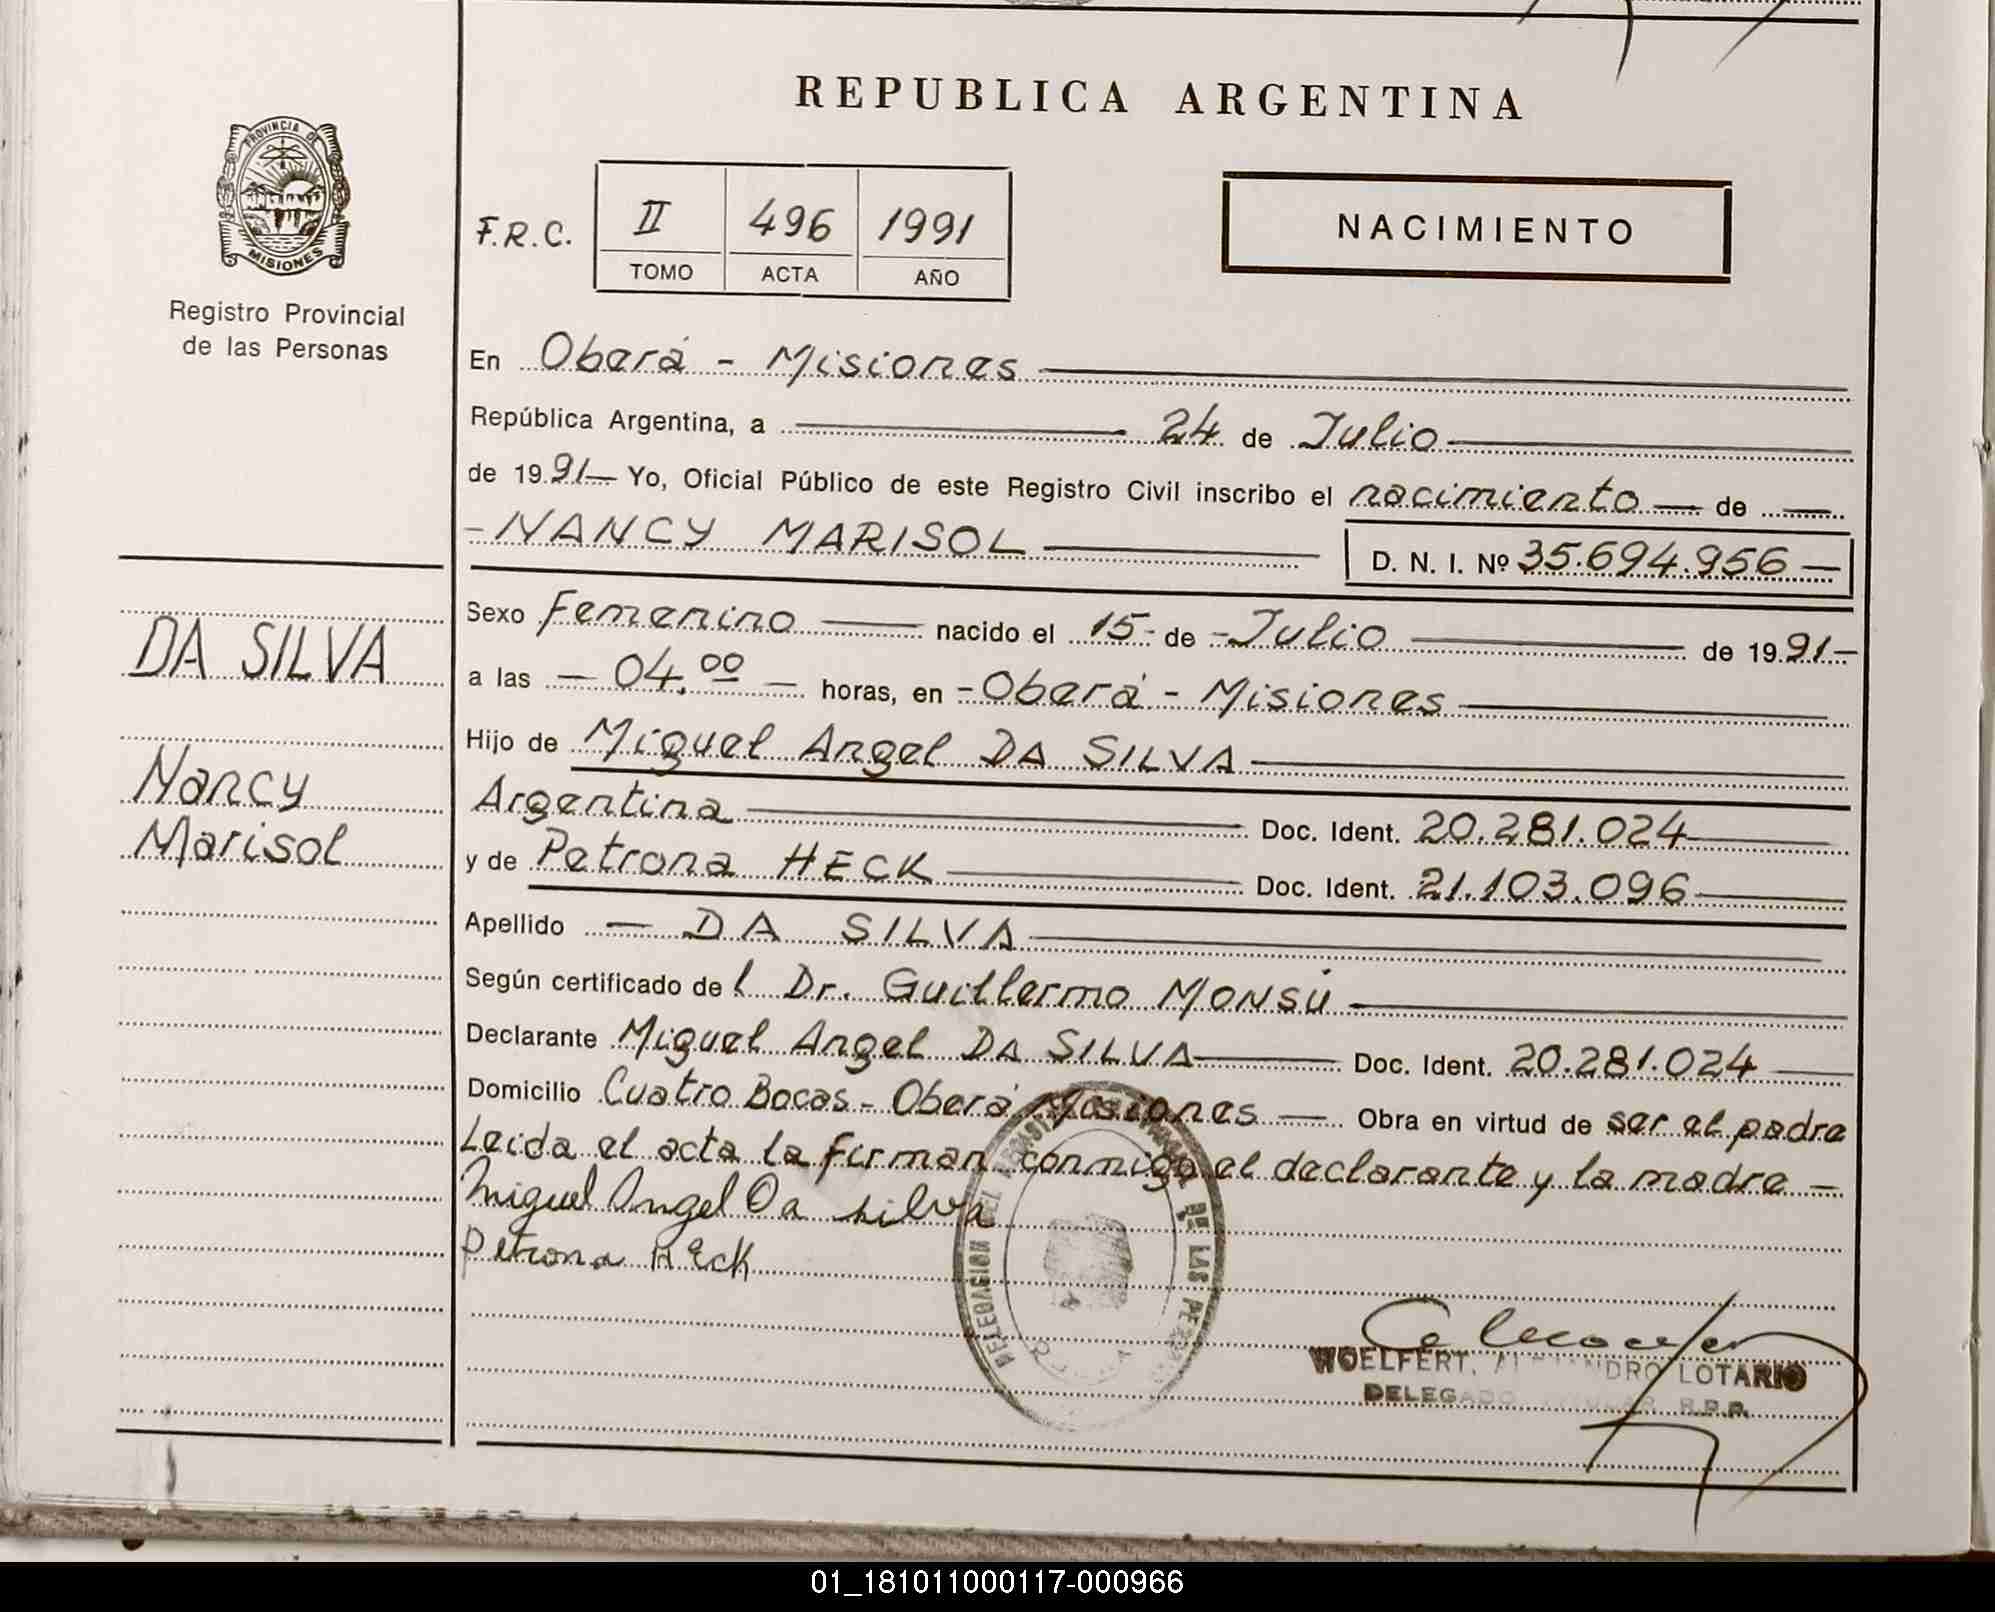 REPUBLICA ARGENTINA
PROVINCIA DE
MISIONES
Registro Provincial
de las Personas
F.R.C. II 496 1991
TOMO ACTA AÑO
NACIMIENTO
En Oberá - Misiones
República Argentina, a 24 de Julio
de 1991 Yo, Oficial Público de este Registro Civil inscribo el nacimiento de
- NANCY MARISOL D. N. I. Nº 35.694.956
Sexo Femenino nacido el 15 - de - Julio de 1991 -
a las - 04,00 - horas, en - Oberá - Misiones
Hijo de Miguel Angel DA SILVA
Argentina Doc. Ident. 20.281.024
y de Petrona HECK Doc. Ident. 21.103.096
Apellido - DA SILVA
Según certificado de l Dr. Guillermo MONSÚ
Declarante Miguel Angel DA SILVA Doc. Ident. 20.281.024
Domicilio Cuatro Bocas - Oberá Misiones Obra en virtud de ser el padre
Leida el acta la firman conmigo el declarante y la madre -
Miguel Angel Da silva
Petrona HEck
DELEGACION DEL DE LAS
WOELFERT, ALEJANDRO LOTARIO
DELEGADO TITULAR R.P.P.
DA SILVA
Nancy
Marisol
01_181011000117-000966